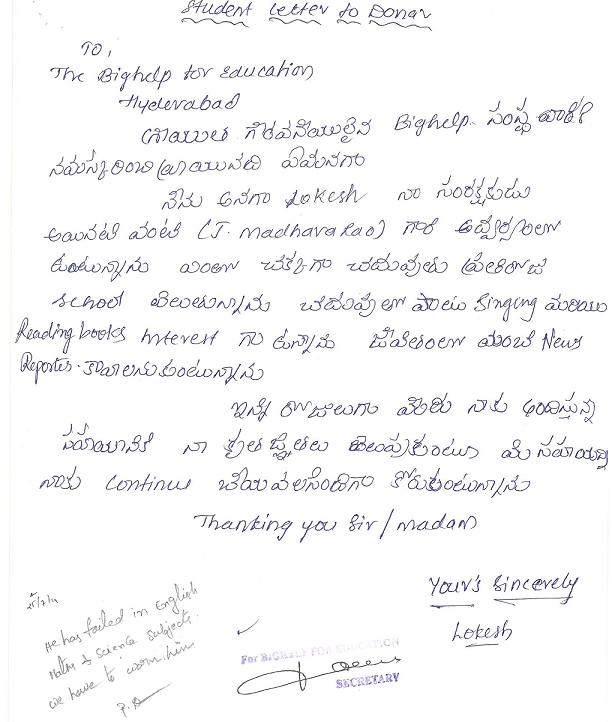 Student Letter to Donar
To,
The Bighelp for Education
Hyderabad
గౌరవనీయులైన Bighelp సంస్థ వారికి
నమస్కరించి వ్రాయునది ఏమనగా
నేను అనగా Lokesh నా సంరక్షకుడు
అయినటువంటి (T. Madhavarao) గారి ఆధ్వర్యంలో
ఉంటున్నాను చక్కగా చదువుతు ప్రతిరోజు
School వెలుతున్నాను చదువుతో పాటు Singing మరియు
Reading books Interest గా ఉన్నాను జీవితంలో మంచి News
Reporter కావాలనుకుంటున్నాను
ఇన్ని రోజులుగా మీరు నాకు అందిస్తున్న
సహాయానికి నా కృతజ్ఞతలు తెలుపుకుంటూ మీ సహాయాన్ని
నాకు continue చేయవలసిందిగా కోరుకుంటున్నాను
Thanking you Sir/madam
Your's Sincerely
Lokesh
He has failed in English
Maths & Science subjects.
we have to warn him
For BIGHELP FOR EDUCATION
SECRETARY